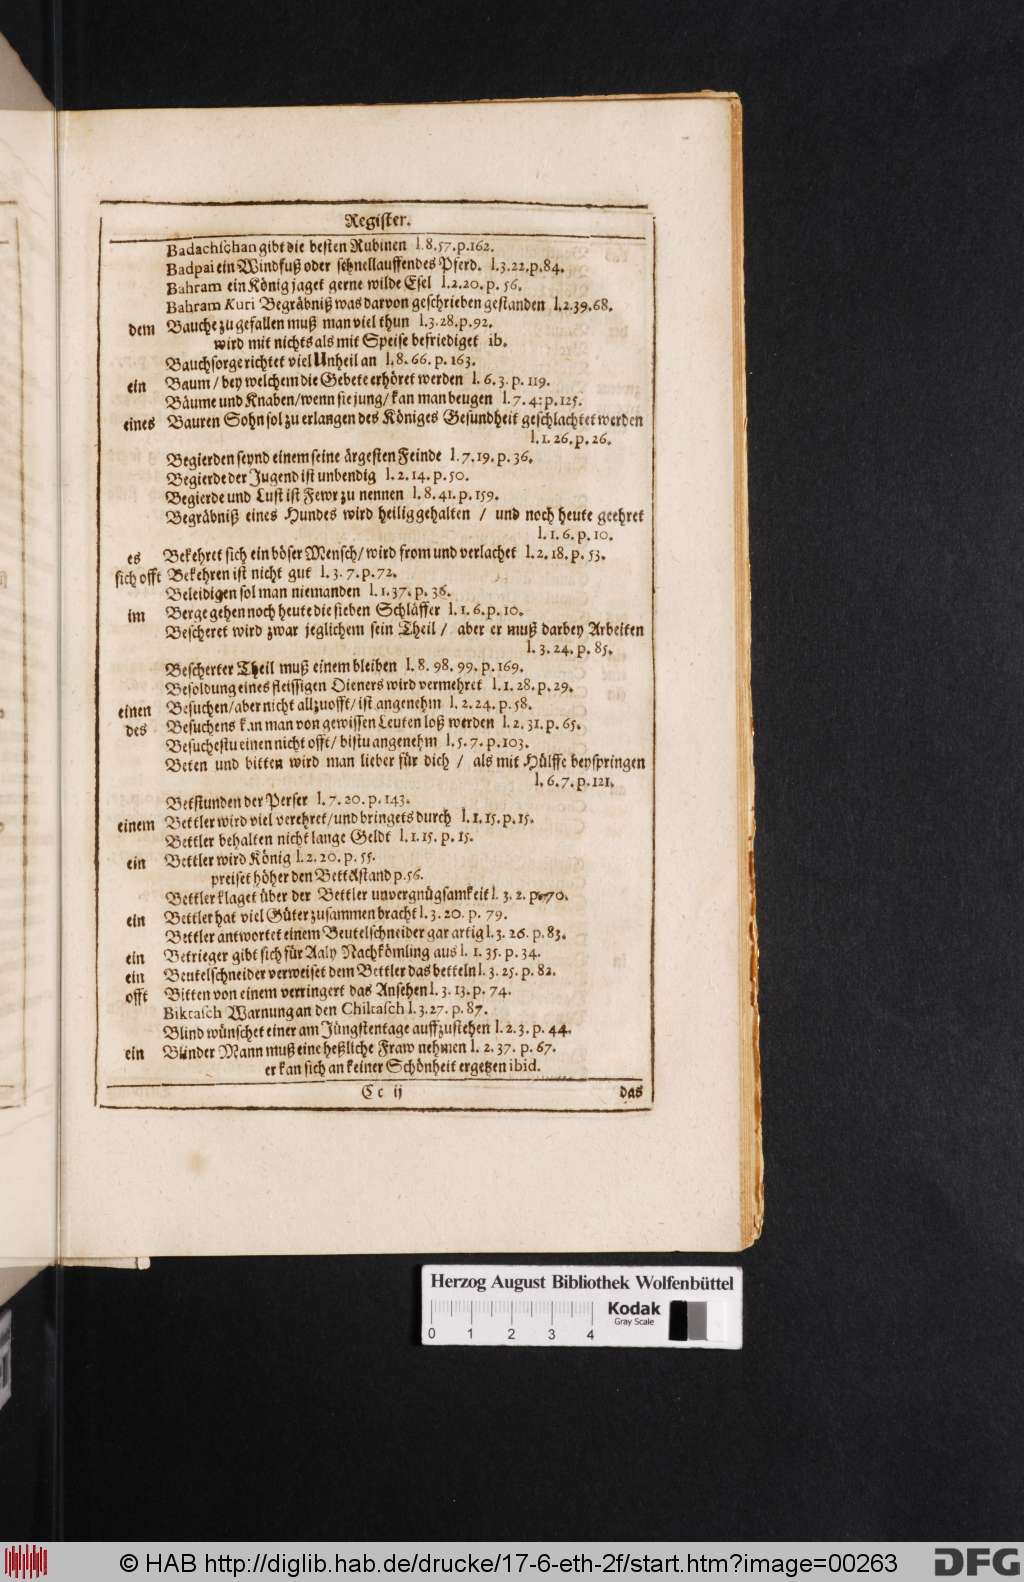 Register.
Badachſchan gibt die beſten Rubinen l.8.57.p.162.
Badpai ein Windfuß oder ſchnellauffendes Pferd. l.3.22.p.84.
Bahram ein König jaget gerne wilde Eſel l.2.20.p. 56.
Bahram Kuri Begräbniß was darvon geſchrieben geſtanden l.2.39.68.
dem Bauche zu gefallen muß man viel thun l.3.28.p.92.
wird mit nichts als mit Speiſe befriediget ib.
Bauchſorge richtet viel Unheil an l.8. 66. p. 163.
ein Baum / bey welchem die Gebete erhöret werden l. 6. 3. p. 119.
Bäume und Knaben/wenn ſie jung/kan man beugen l. 7. 4. p. 125.
eines Bauren Sohn ſol zu erlangen des Königes Geſundheit geſchlachtet werden
l. 1. 26. p. 26.
Begierden ſeynd einem ſeine ärgeſten Feinde l. 7. 19. p. 36.
Begierde der Jugend iſt unbendig l. 2. 14. p. 50.
Begierde und Luſt iſt Fewr zu nennen l. 8. 41. p. 159.
Begräbniß eines Hundes wird heilig gehalten / und noch heute geehret
l. 1. 6. p. 10.
es Bekehret ſich ein böſer Menſch/ wird from und verlachet l. 2. 18. p. 53.
ſich offt Bekehren iſt nicht gut l. 3. 7. p. 72.
Beleidigen ſol man niemanden l. 1. 37. p. 36.
im Berge gehen noch heute die ſieben Schläffer l. 1. 6. p. 10.
Beſcheret wird zwar jeglichem ſein Theil / aber er muß darbey Arbeiten
l. 3. 24. p. 85.
Beſcherter Theil muß einem bleiben l. 8. 98. 99. p. 169.
Beſoldung eines fleiſſigen Dieners wird vermehret l. 1. 28. p. 29.
einen Beſuchen/aber nicht allzuofft/ iſt angenehm l. 2. 24. p. 58.
des Beſuchens kan man von gewiſſen Leuten loß werden l. 2. 31. p. 65.
Beſucheſtu einen nicht offt/ biſtu angenehm l. 5. 7. p. 103.
Beten und bitten wird man lieber für dich / als mit Hülffe beyſpringen
l. 6. 7. p. 121.
Betſtunden der Perſer l. 7. 20. p. 143.
einem Bettler wird viel verehret/und bringets durch l. 1. 15. p. 15.
Bettler behalten nicht lange Geldt l. 1. 15. p. 15.
ein Bettler wird König l. 2. 20. p. 55.
preiſet höher den Bettelſtand p. 56.
Bettler klaget über der Bettler unvergnügſamkeit l. 3. 2. p. 70.
ein Bettler hat viel Güter zuſammen bracht l. 3. 20. p. 79.
Bettler antwortet einem Beutelſchneider gar artig l. 3. 26. p. 83.
ein Betrieger gibt ſich für Aaly Nachkömling aus l. 1. 35. p. 34.
ein Beutelſchneider verweiſet dem Bettler das betteln l. 3. 25. p. 82.
offt Bitten von einem verringert das Anſehen l. 3. 13. p. 74.
Biktaſch Warnung an den Chiltaſch l. 3. 27. p. 87.
Blind wünſchet einer am Jüngſtentage auffzuſtehen l. 2. 3. p. 44.
ein Blinder Mann muß eine heßliche Fraw nehmen l. 2. 37. p. 67.
er kan ſich an keiner Schönheit ergetzen ibid.
Cc ij das
Herzog August Bibliothek Wolfenbüttel
0 1 2 3 4 Kodak
Gray Scale
© HAB http://diglib.hab.de/drucke/17-6-eth-2f/start.htm?image=00263 DFG